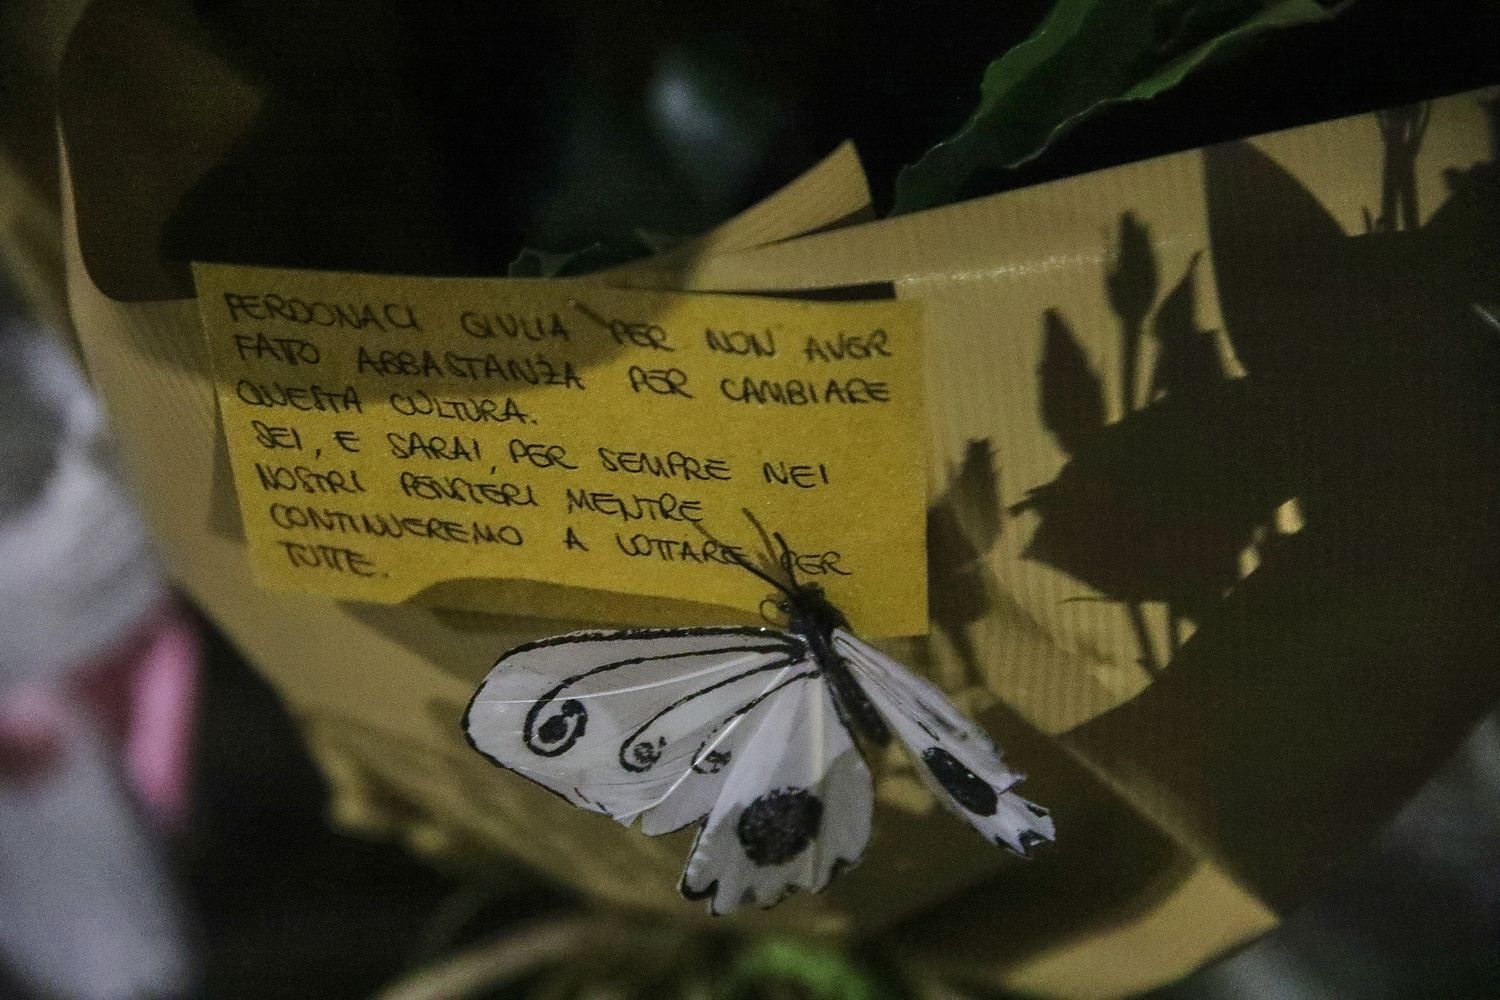 PERDONACI GIULIA PER NON AVER
FATTO ABBASTANZA PER CAMBIARE
QUESTA CULTURA.
SEI, E SARAI, PER SEMPRE NEI
NOSTRI PENSIERI MENTRE
CONTINUEREMO A LOTTARE PER
TUTTE.